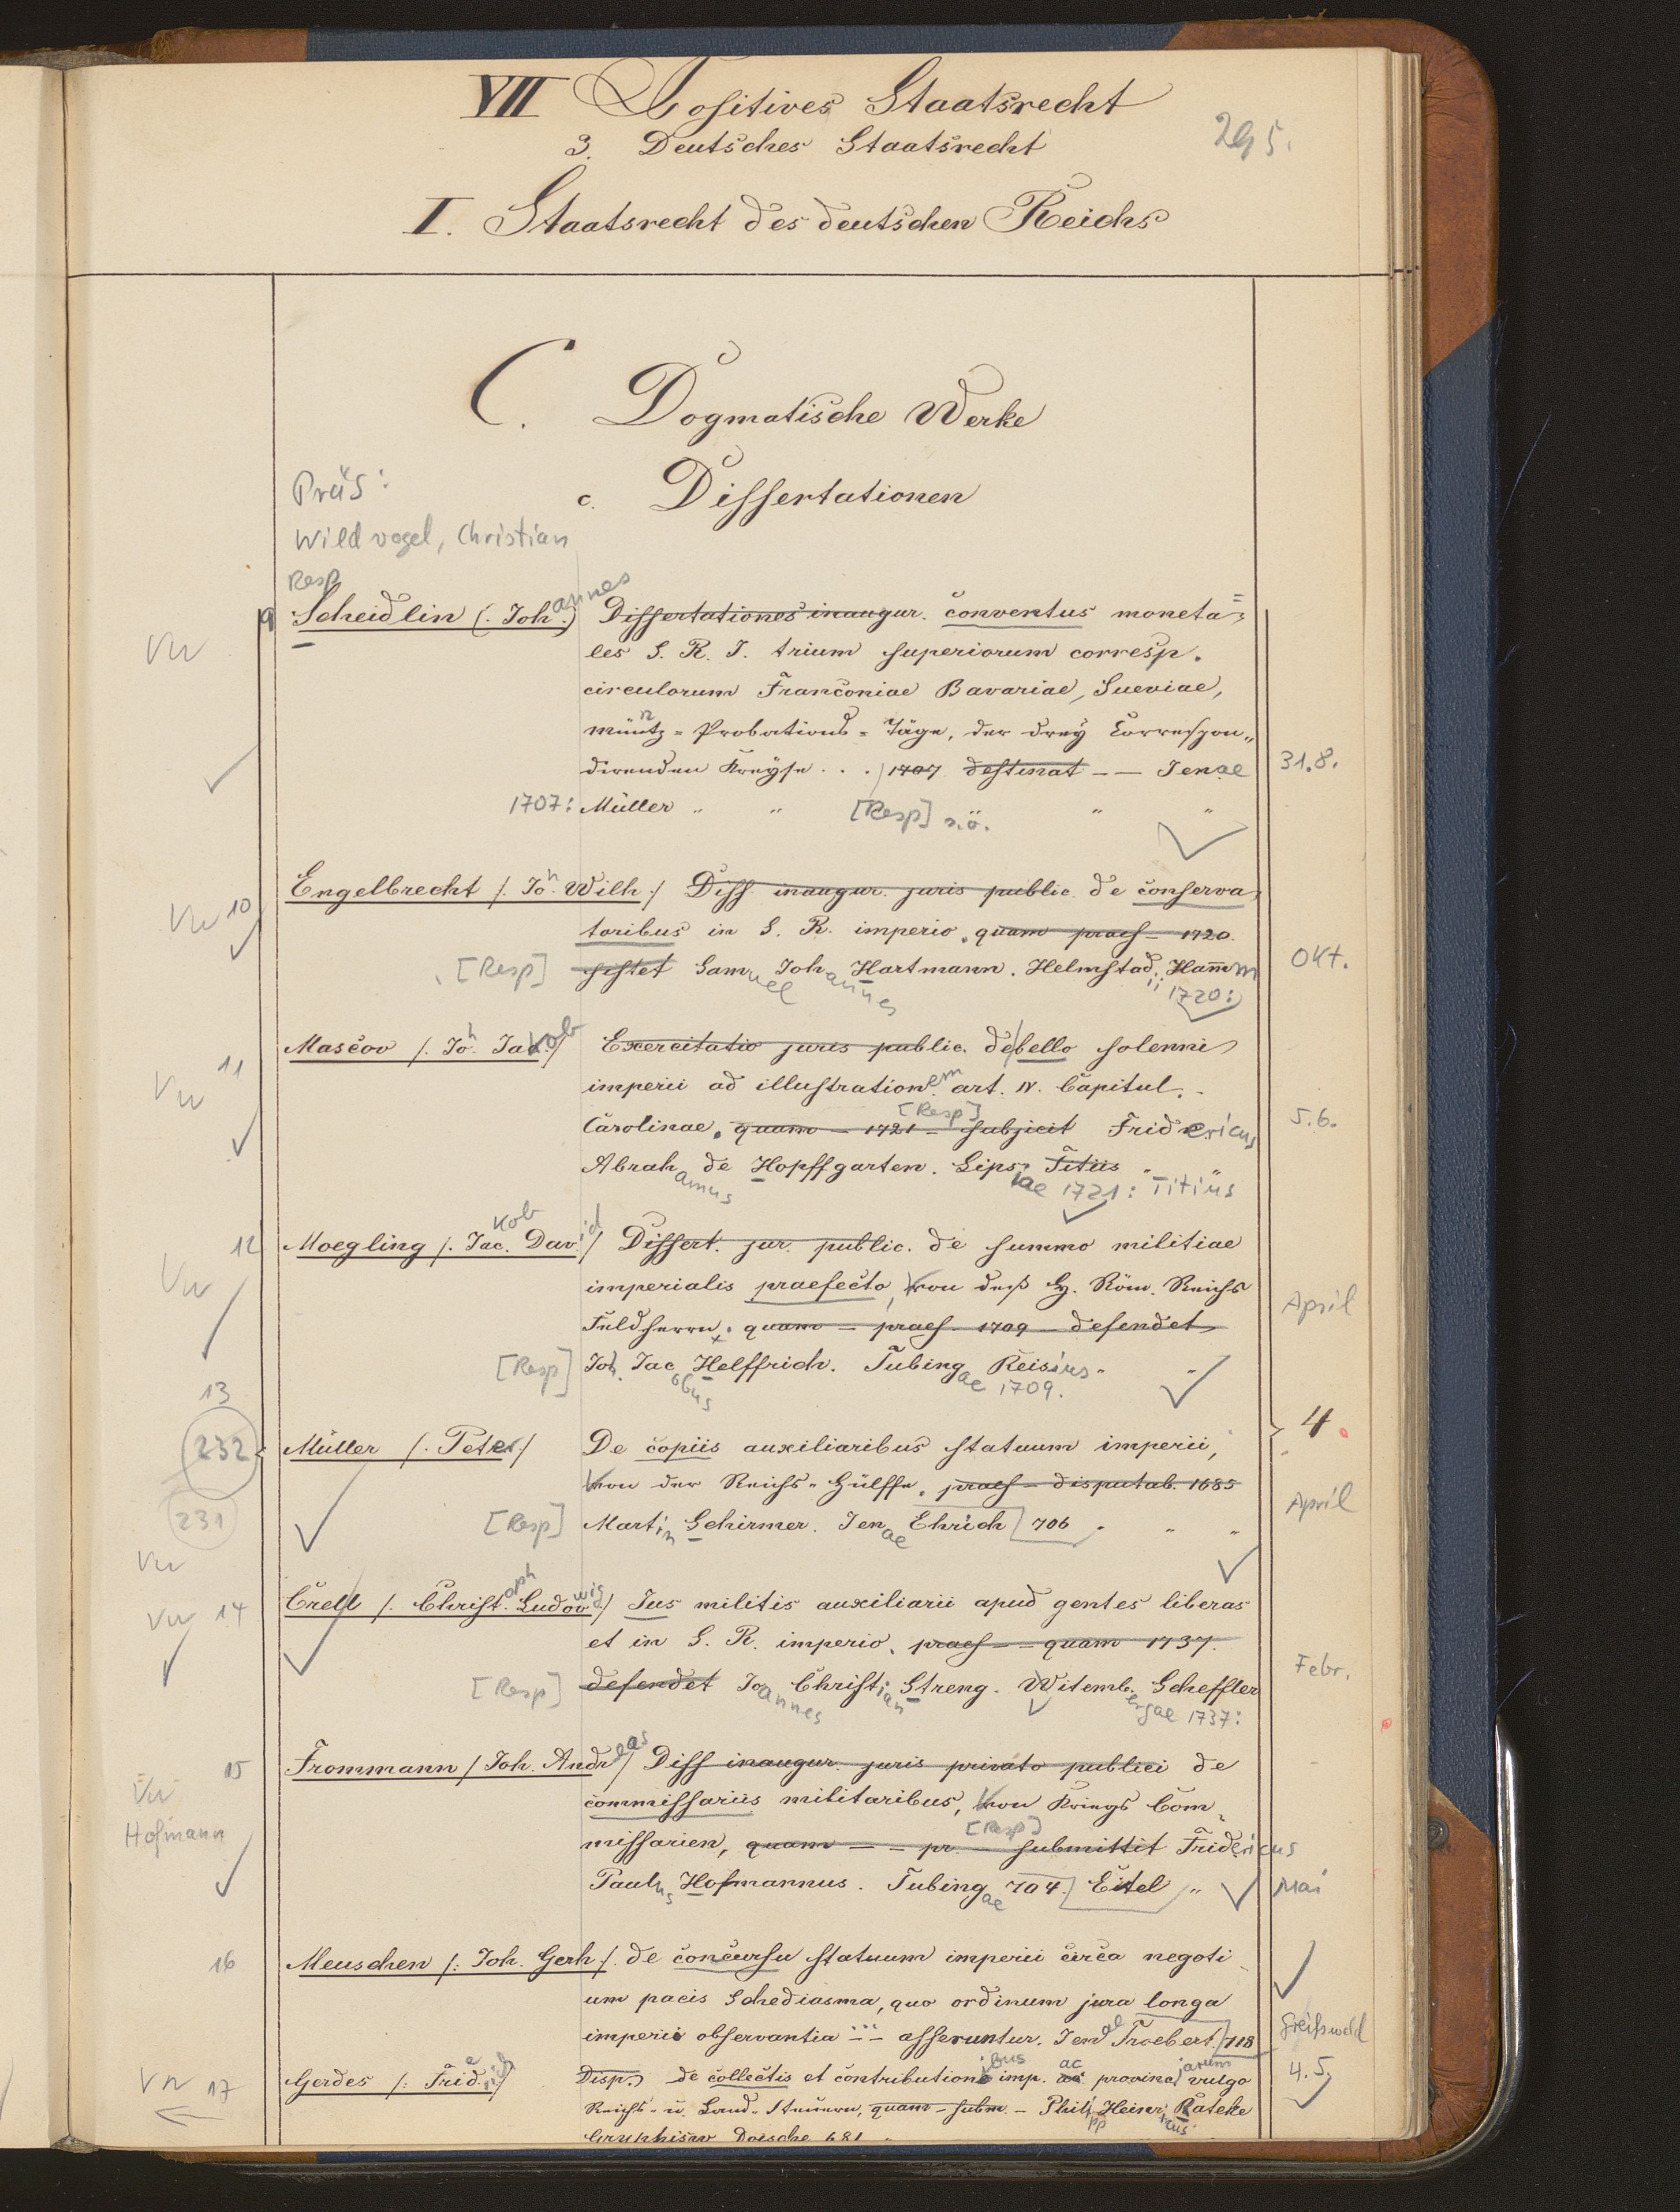 VII Positives Staatsrecht
3. Deutsches Staatsrecht
295.
I. Staatsrecht des deutschen Reichs
C. Dogmatische Werke
c. Dissertationen
Präs:
Wildvogel, Christian
Resp
9 Scheidlin (. Johannes) Dissertationes inaugur. conventus moneta=
Vw
les S. R. I. trium superiorum corresp.
circulorum Franconiae Bavariae, Sueviae,
müntz-Probations-Täge, der drey Correspon„
direnden Kreyse . . . 1707 destinat — Jenae 31.8.
1707: Müller „ „ [Resp] s.ö. „ „
Vw 10 Engelbrecht /. Joh. Wilh./ Diss. inaugur. juris public. de conserva
toribus in S. R. imperio. quam praes – 1720.
[Resp] sistet Samuel Johannes Hartmann. Helmstadii Hamm Okt.
1720:
Vw 11 Mascov /. Joh. Jakob./ Exercitatio juris public. de bello solenni
imperii ad illustrationem art. IV. Capitul.
[Resp]
Carolinae. quam – 1721 – subjicit Fridericus 5.6.
Abrahamus de Hopffgarten. Lipsiae Titiis „ „
1721: Titius
Vw 12 Moegling /. Jakob. David./ Dissert. jur. public. de summo militiae
imperialis praefecto, von deß H. Röm. Reichs April
Feldherrn. quam – praes. 1709 – defendet
[Resp] Joh. Jacobus Helffrich. Tubingae Reisius „ „
1709.
13
232 Müller /. Peter./ De copiis auxiliaribus statuum imperii, 4.
von der Reichs-Hülffe. praes – disputab. 1685 April
231 [Resp] Martin Schirmer. Jenae Ehrich 706 „ „ „
Vw
Vw 14 Crell /. Christoph. Ludowig./ Jus militis auxiliarii apud gentes liberas
et in S. R. imperio. praes – – quam 1737.
Febr.
[Resp] defendet Joannes Christian Streng. Witembergae Scheffler
1737:
Vw 15 Frommann / Joh. Andreas / Diss inaugur. juris privato publici de
Hofmann
commissariis militaribus, von Kriegs Com
[Resp]
missarien, quam – – pr. – submittit Fridericus
Paulus Hofmannus. Tubingae 704. Eitel „ Mai
16 Meuschen /: Joh. Gerh./. de concursu statuum imperii circa negoti
um pacis Schediasma, quo ordinum jura longa
imperii observantia – asseruntur. Jenae Troebert. 718 Greifswald
Vw 17 Gerdes /: Friderich./ Disp. de collectis et contributionibus imp. ac provinciarum vulgo 4.5.
Reichs- u. Land-Steuern, quam – subm. – Philipp Heinricus Rateke
Gryphisw Doische 681 „